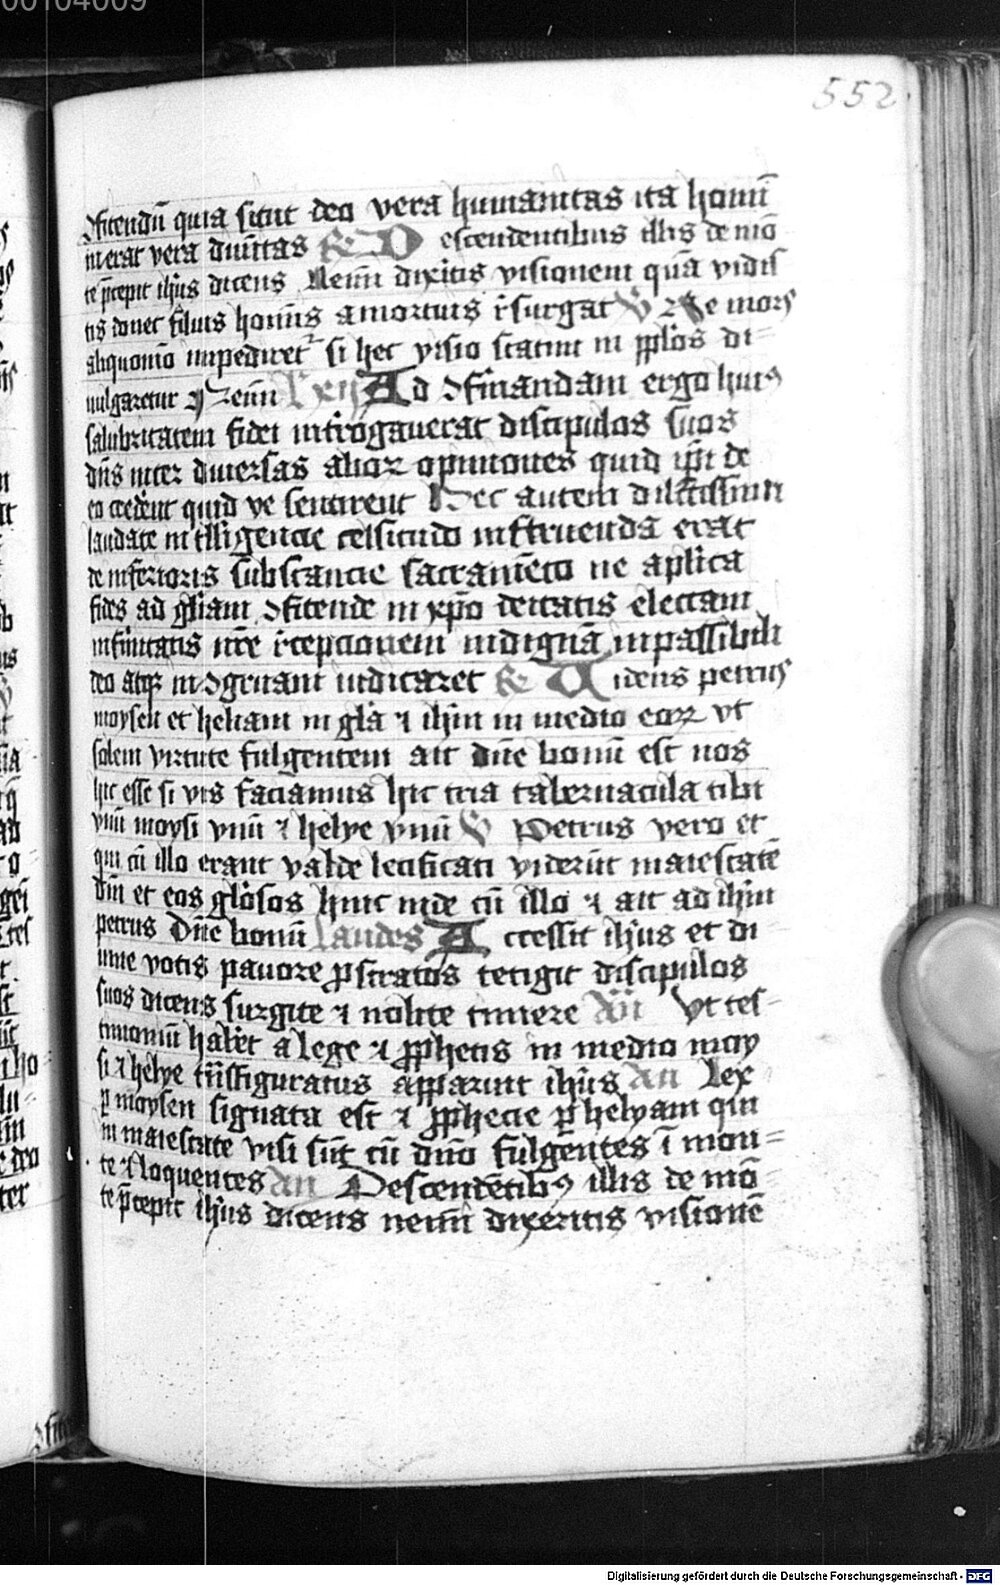 00104009
552.
ꝯfitendū quia sicut deo vera humanitas ita homī
inerat vera diuītas R D escendentibus illis de mō
te p̄cepit ih̄us dicens Nemī dixitis visionem quā vidis
tis donec filius homīs a mortuis r̄surgat V Ne mors
aliquomō impediret si hec visio statim in pp̄los di-
uulgaretur Nemī Lc̄ A d ꝯfirmandam ergo huiꝰ
salubritatem fidei int̄rogauerat discipulos suos
dn̄s inter diuersas alioꝝ opiniones quid ip̄i de
eo crederēt quid ve sentirent Nec autem dilc̄tissimi
laudate intelligencie celsitudo instruenda erat
de inferioris substancie sacramēto ne aplica
fides ad gl̄iam ꝯfitende in xp̄o deitatis eleccam
infirmitatis nr̄e r̄cepcionem indignā inpassibili
deo atqꝫ inꝯgruam iudicaret R U idens petrus
moysen et heliam in gl̄a ⁊ ih̄m in medio eoꝝ vt
solem virtute fulgentem ait dn̄e bonū est nos
hic esse si vis faciamus hic tria tabernacula tibi
vnū moysi vnū ⁊ helye vnū V Petrus vero et
qui cū illo erant valde letificati viderūt maiestatē
dn̄i et eos gl̄osos hinc inde cū illo ⁊ ait ad ih̄m
petrus Dn̄e bonū Laudes A ccessit ih̄us et di-
uine votis pauore ꝓstratos tetigit discipulos
suos dicens surgite ⁊ nolite timere An̄ Vt tes-
timoniū habēt a lege ⁊ ꝓphetis in medio moy
si ⁊ helye tn̄sfiguratus apparuit ih̄us An Lex
ꝑ moysen signata est ⁊ ꝓphecie ꝑ helyam qui
in maiestate visi sūt cū dn̄o fulgentes ī mon-
te ⁊ loquentes An Descendētibꝰ illis de mō-
te p̄cepit ih̄us dicens nemī dixeritis visionē
Digitalisierung gefördert durch die Deutsche Forschungsgemeinschaft - DFG